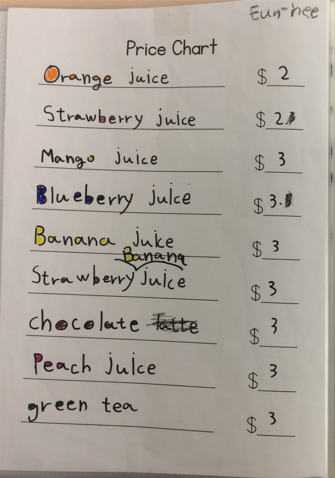 Eun-hee
Price Chart
Orange juice $ 2
Strawberry juice $ 2.
Mango juice $ 3
Blueberry juice $ 3.
Banana juice $ 3
Banana
Strawberry juice $ 3
chocolate latte $ 3
Peach juice $ 3
green tea $ 3